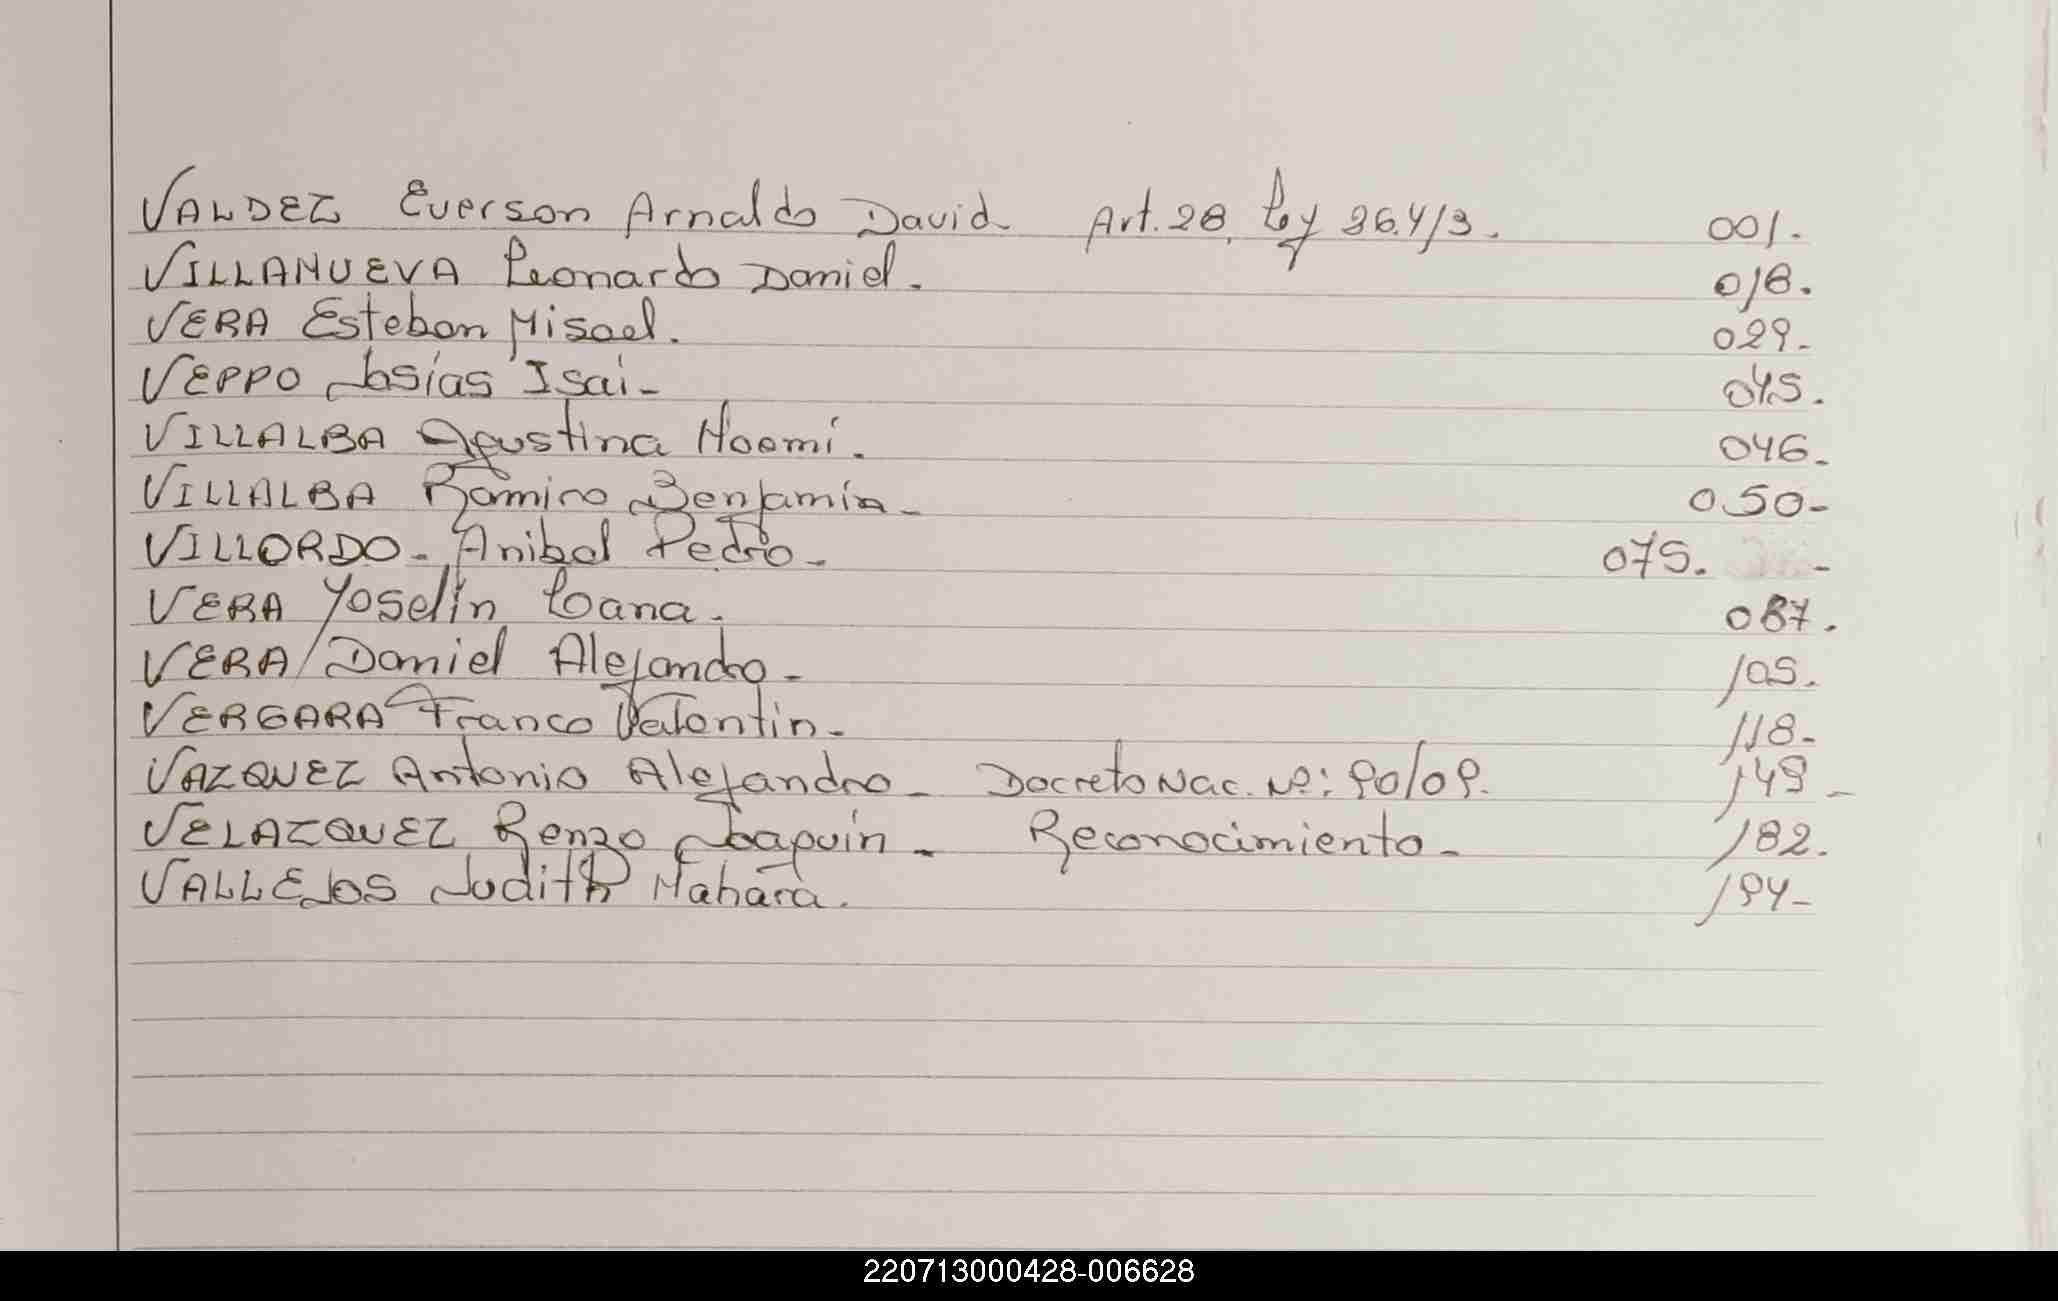 VALDEZ Everson Arnaldo David Art. 28, Ley 26.413. 001.
VILLANUEVA Leonardo Daniel. 018.
VERA Esteban Misael. 029-
VEPPO Josías Isai- 045.
VILLALBA Agustina Noemí. 046-
VILLALBA Ramiro Benjamín- 050-
VILLORDO- Anibal Pedro- 075. -
VERA Yoselin Loana. 087.
VERA Daniel Alejandro- 105.
VERGARA Franco Valentin- 118-
VAZQUEZ Antonio Alejandro- Decreto Nac. Nº: 90/09. 149-
VELAZQUEZ Renzo Joaquín- Reconocimiento- 182.
VALLEJOS Judith Nahara. 194-
220713000428-006628